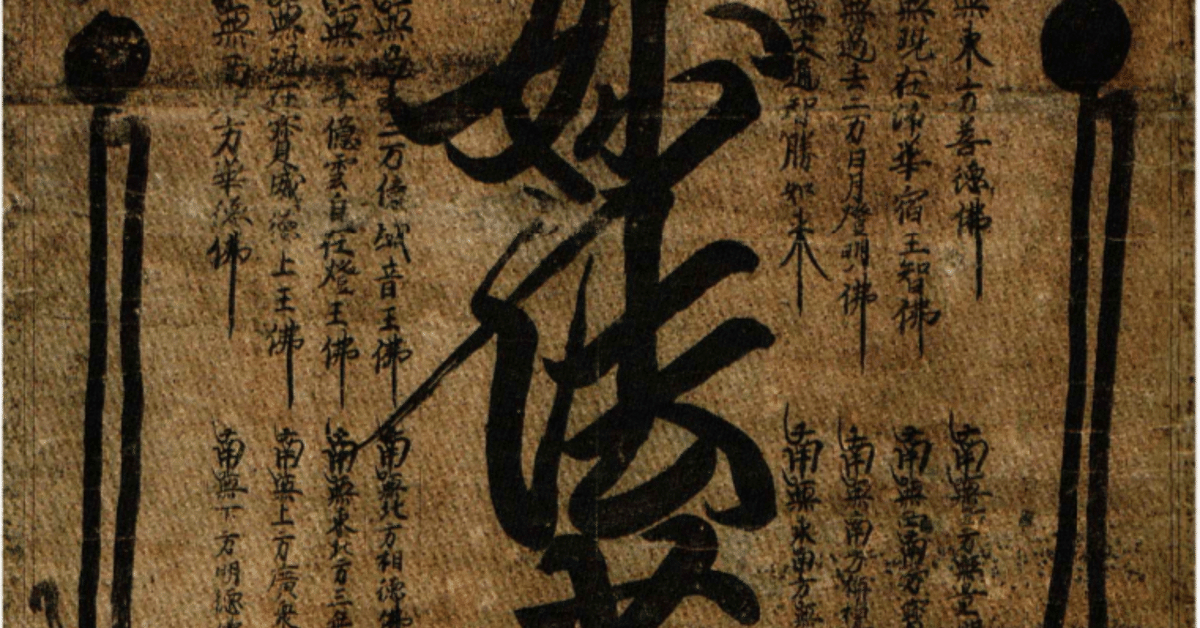 無東方善德佛
無現在淨華宿王智佛
無過去二万日月燈明佛
無大通智勝如来
南無西方無量
南無西南方寶
南無南方栴檀
南無東南方無
妙法
無過去二万億威音王佛
無二千億雲自在燈王佛
無現在寶威德上王佛
無西北方華德佛
南無北方相德佛
南無東北方三
南無上方廣衆
南無下方明德